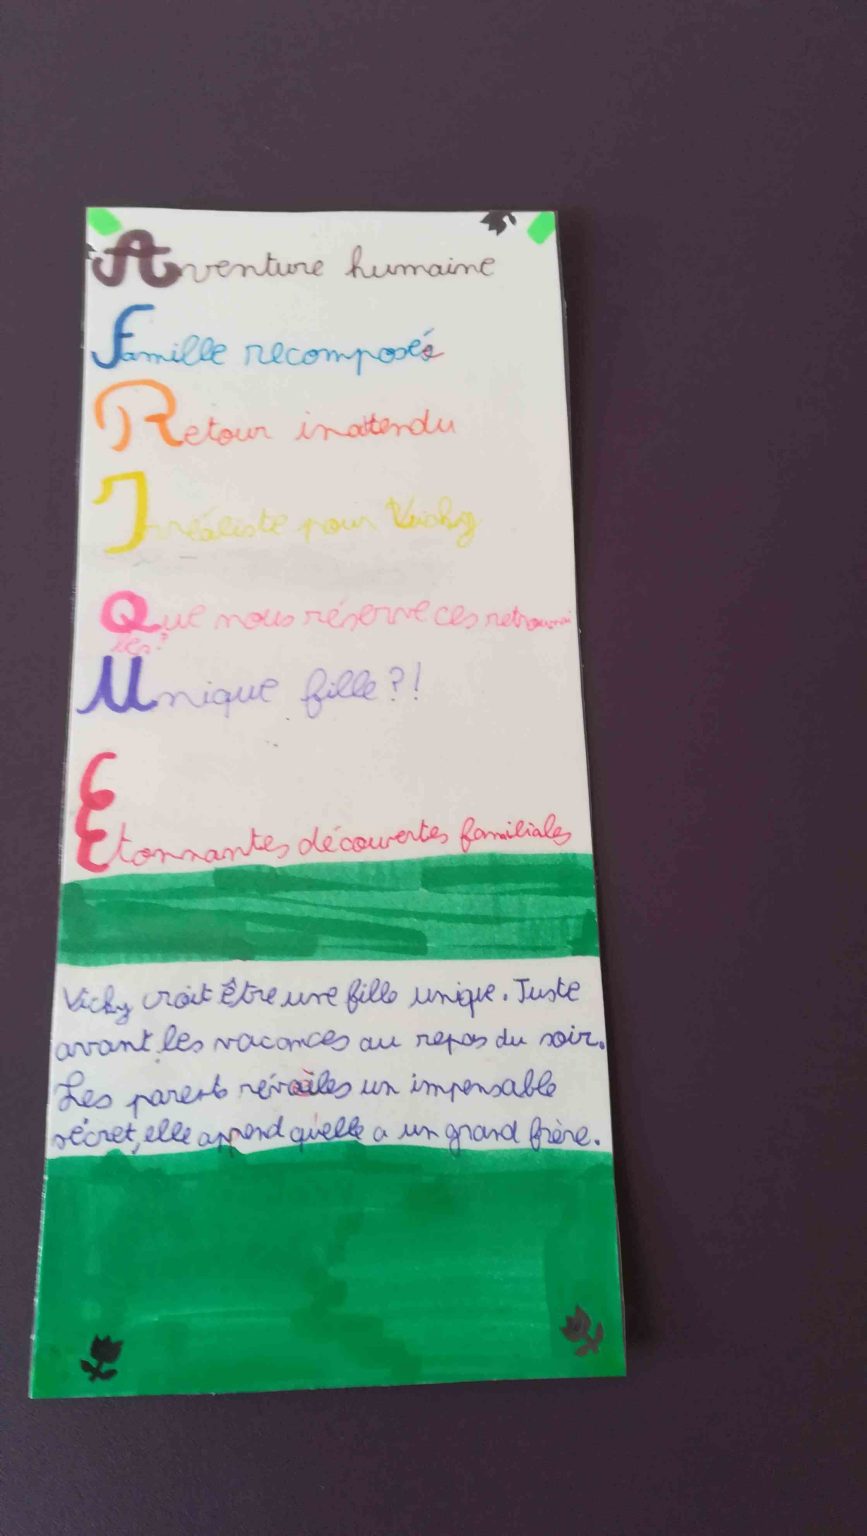 Aventure humaine
Famille recomposée
Retour inattendu
Irréaliste pour Vicky
Que nous réserve ces retrouvai
lles?
Unique fille?!
Etonnantes découvertes familiales
Vicky croit Être une fille unique. Juste
avant les vacances au repas du soir.
Les parents révoiles un impensable
sécret, elle apprend qu'elle a un grand frère.